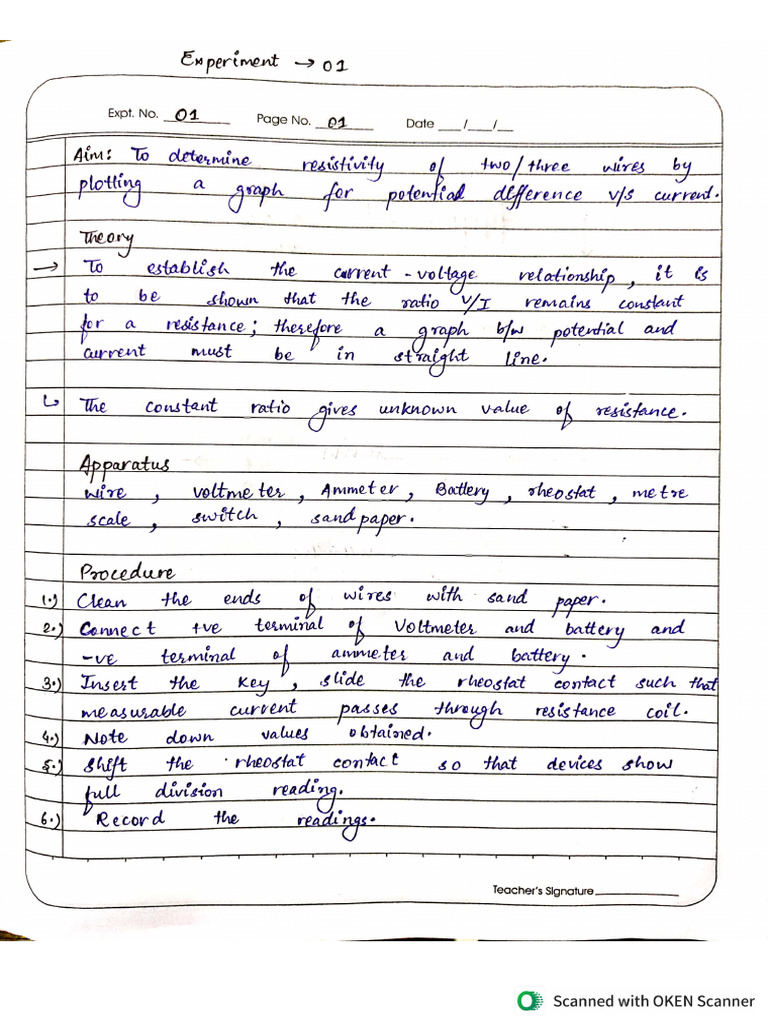 Experiment → 01
Expt. No. 01 Page No. 01 Date __/__/__
Aim: To determine resistivity of two/three wires by
plotting a graph for potential difference v/s current.
Theory
→ To establish the current-voltage relationship, it is
to be shown that the ratio V/I remains constant
for a resistance; therefore a graph b/w potential and
current must be in straight line.
↳ The constant ratio gives unknown value of resistance.
Apparatus
wire, voltmeter, Ammeter, Battery, rheostat, metre
scale, switch, sand paper.
Procedure
1.) Clean the ends of wires with sand paper.
2.) Connect +ve terminal of Voltmeter and battery and
-ve terminal of ammeter and battery.
3.) Insert the key, slide the rheostat contact such that
measurable current passes through resistance coil.
4.) Note down values obtained.
5.) Shift the rheostat contact so that devices show
full division reading.
6.) Record the readings.
Teacher's Signature
Scanned with OKEN Scanner